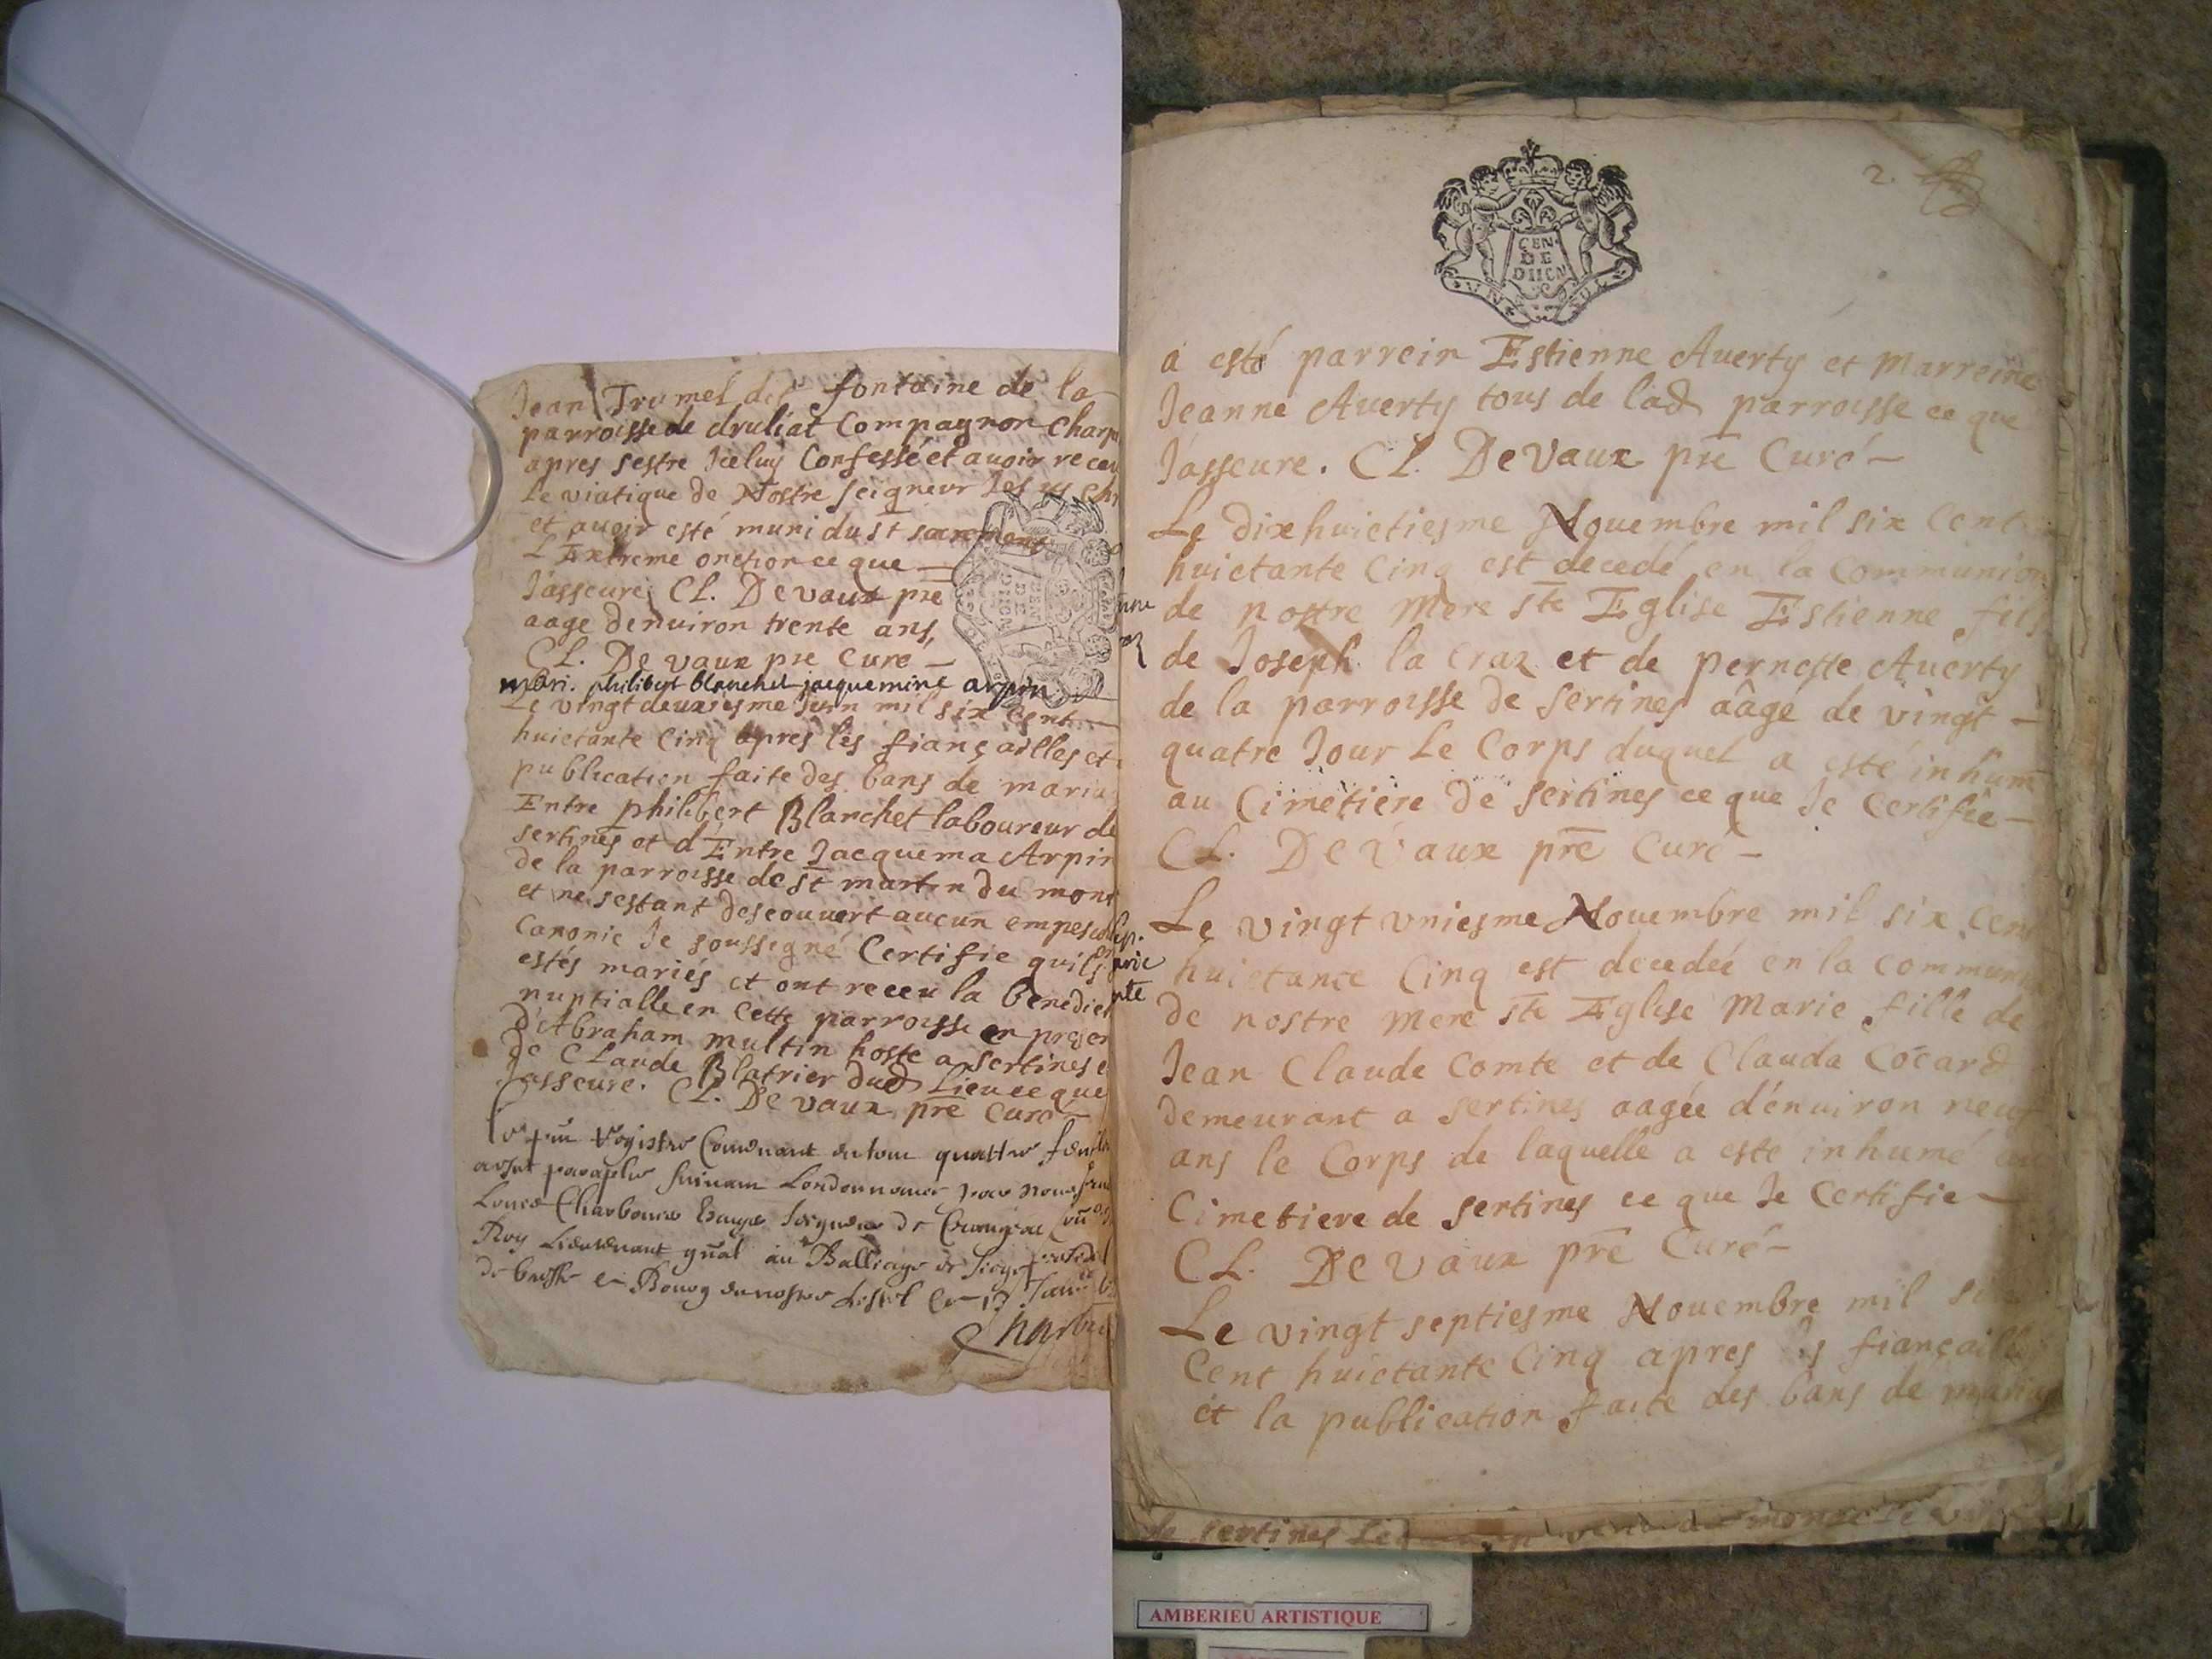 Jean Trumel dit fontaine de la
parroisse de druliat Compagnon Charp
apres sestre Iceluy Confessé et auoir receu
Le viatique de Nostre seigneur Jesus Chr
et auoir esté muni du st sacrement
L Extreme onction ce que —
J'asseure. CL. De vaux pre
aage denuiron trente ans,
CL. De vaux pre Curé —
mari. philibert blanchet jacquemine arpin
Le vingt deuxiesme Juin mil six Cent —
huictante Cinq apres les fiançailles et
publication faite des bans de maria
Entre philibert Blanchet laboureur de
sertines et d'Entre Jacquema Arpin
de la parroisse de st martin du mont
et ne sestant descouuert aucun empesch
Canonic Je soussigné Certifie quils
estés mariés et ont receu la benedict
nuptialle en Cette parroisse en presen
d'Abraham multin hoste a sertines e
de Claude Blatrier dud Lieu ce que
J'asseure. CL. De vaux pre Curé —
registre Contenant quattre
paraphe suiuant par nous
Louis Charbonnier seigneur de
Roy Lieutenant gnal au Balliage et siege
de bresse Bourg en nostre hostel
Charbo
2.
CEN
DE
DIION
a esté parrein Estienne Auerty et Marreine
Jeanne Auerty tous de lad parroisse ce que
J'asseure. CL. De Vaux pre Curé —
Le dixhuictiesme Nouembre mil six Cent
huictante Cinq est decedé en la Communion
de nostre Mere ste Eglise Estienne fils
de Joseph la Craz et de pernette Auerty
de la parroisse de sertines aâgé de vingt —
quatre Jour Le Corps duquel a esté inhumé
au Cimetiere de sertines ce que Je Certifie —
CL. De Vaux pre Curé —
Le vingt vniesme Nouembre mil six Cent
huictante Cinq est decedée en la Commun
de nostre Mere ste Eglise Marie fille de
Jean Claude Comte et de Clauda Cocard
demeurant a sertines aagée d'énuiron neuf
ans le Corps de laquelle a este inhumé au
Cimetiere de sertines ce que Je Certifie —
CL. De Vaux pre Curé —
Le vingt septiesme Nouembre mil six
Cent huictante Cinq apres les fiançailles
et la publication faite des bans de mariage
de sertines
AMBERIEU ARTISTIQUE